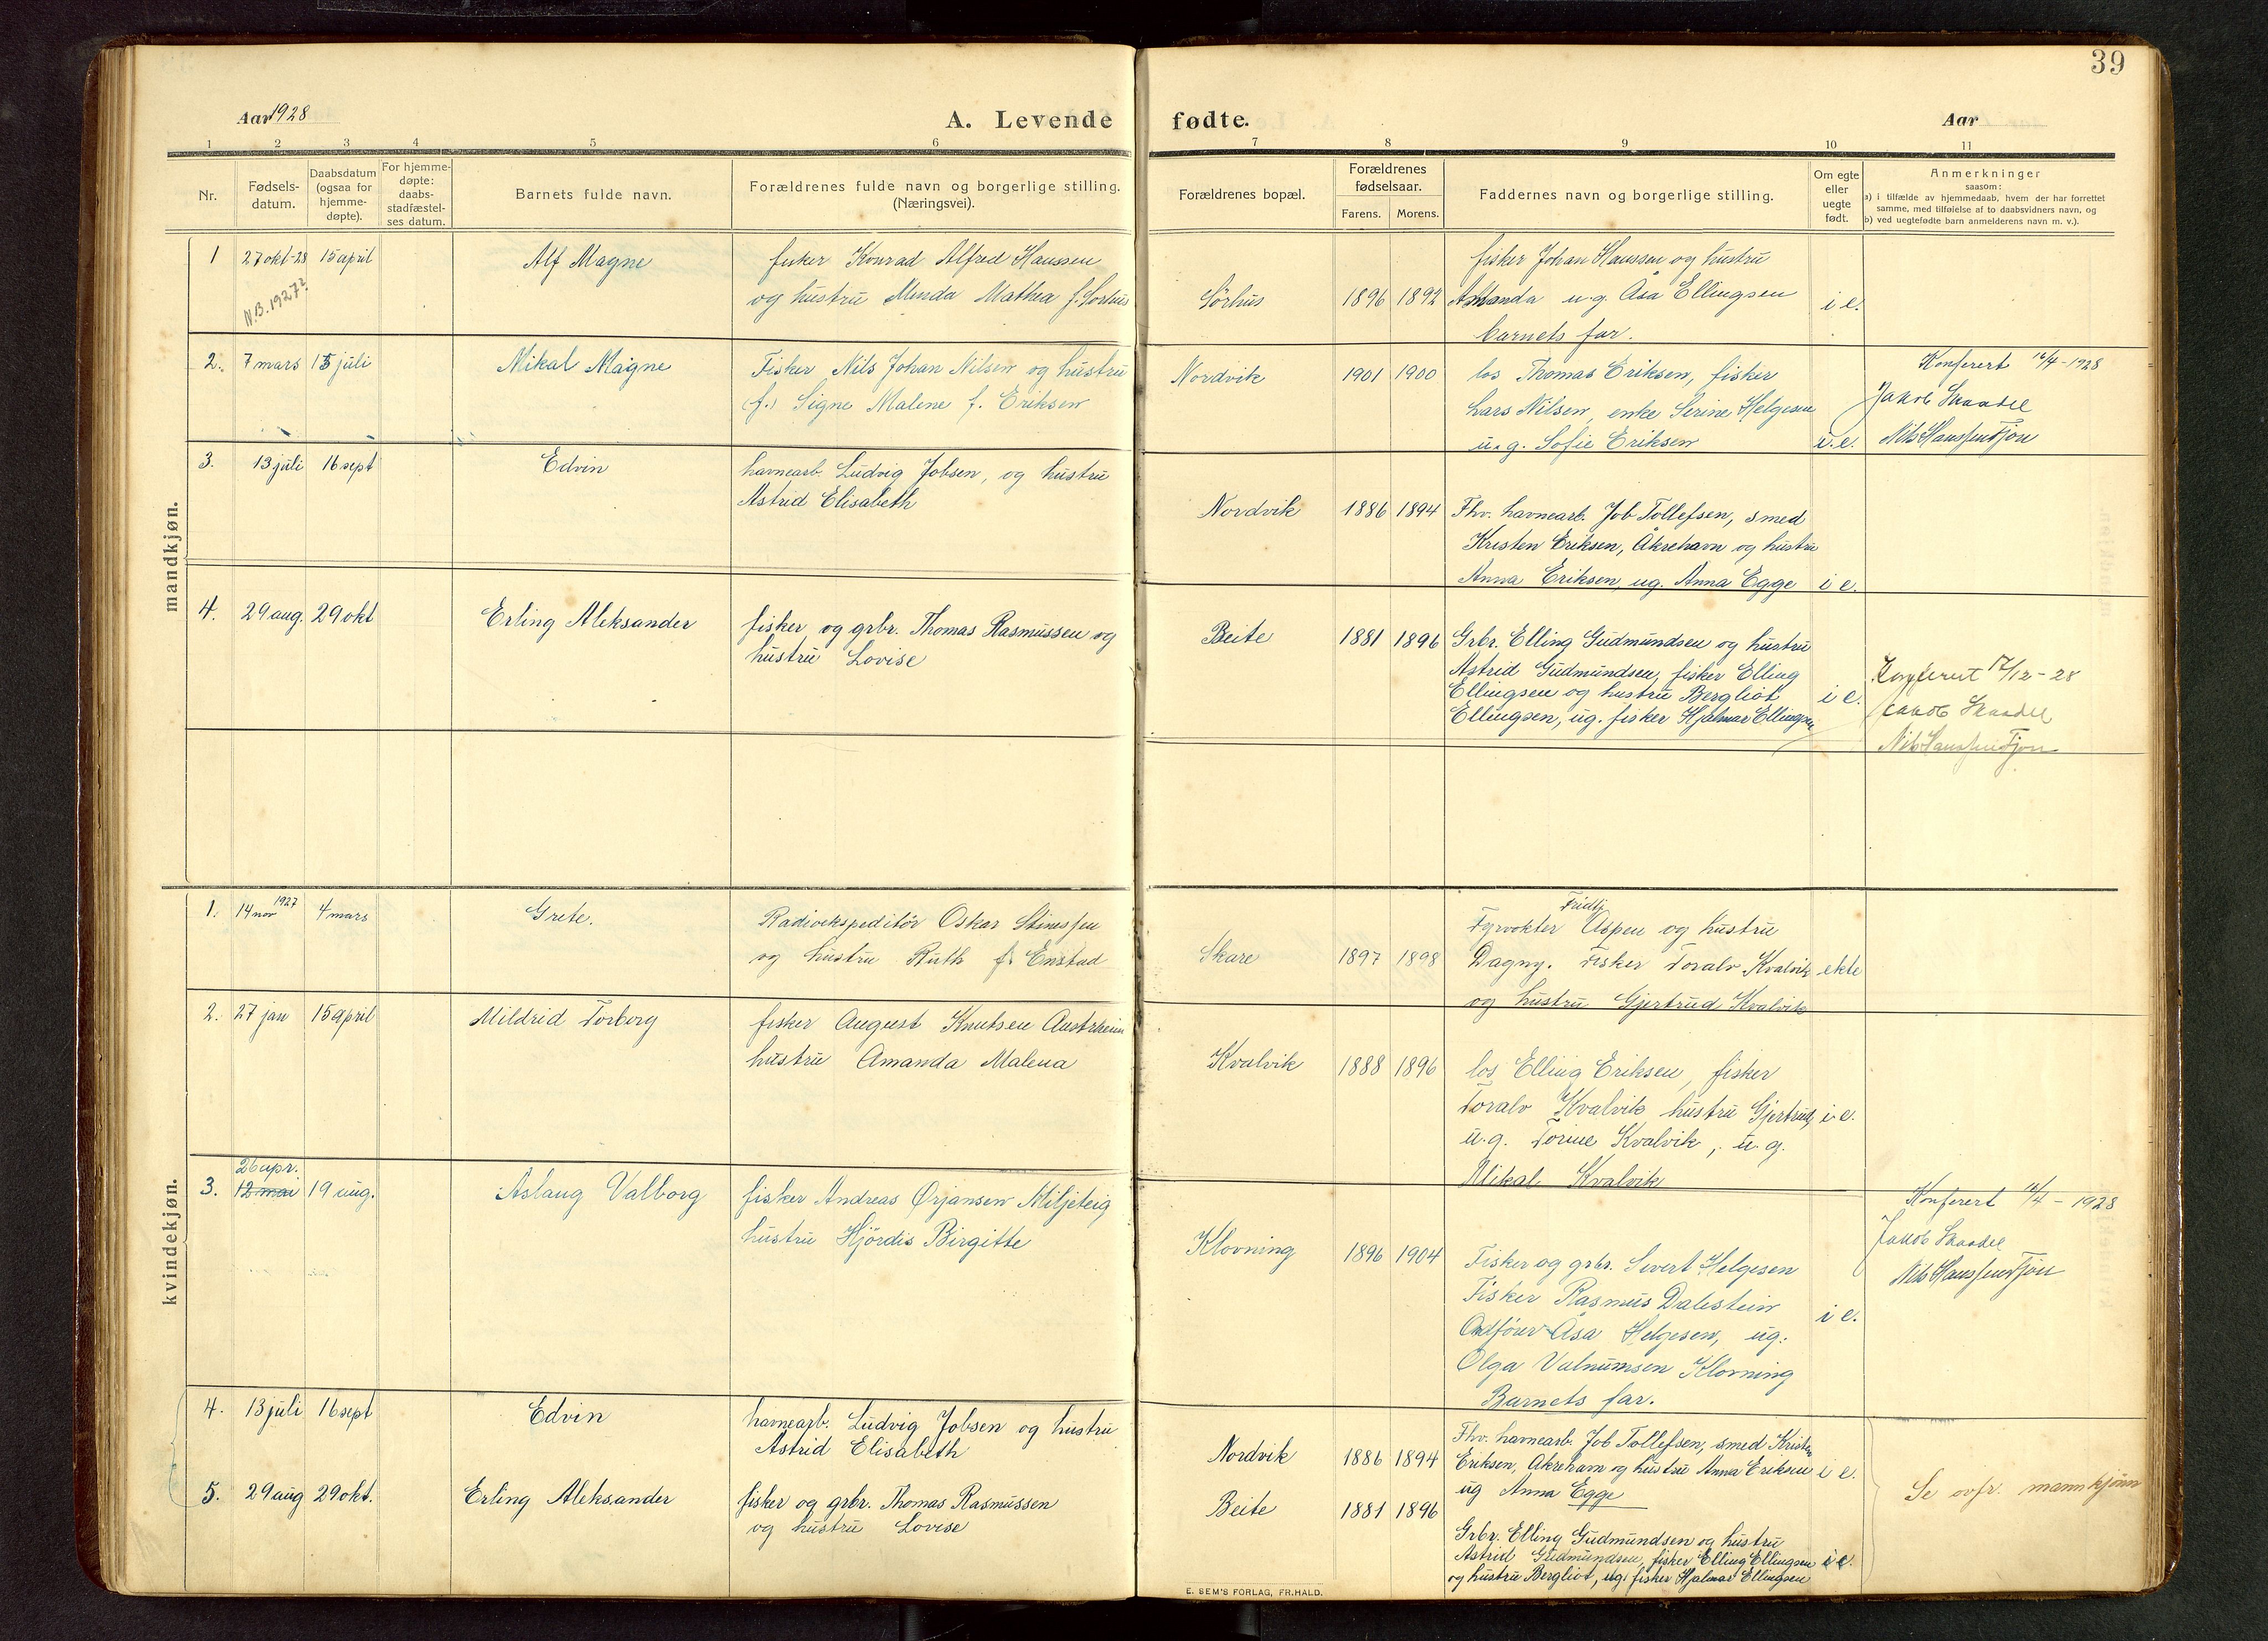 39
Aar 1928
A. Levende fødte.
Aar
1 2 3 4 5 6 7 8 9 10 11
Nr.
Fødsels-
datum.
Daabsdatum
(ogsaa for
hjemme-
døpte).
For hjemme-
døpte:
daabs-
stadfæstel-
ses datum.
Barnets fulde navn.
Forældrenes fulde navn og borgerlige stilling.
(Næringsvei).
Forældrenes bopæl.
Forældrenes
fødselsaar.
Farens. Morens.
Faddernes navn og borgerlige stilling.
Om egte
eller
uegte
født.
Anmerkninger
saasom:
a) i tilfælde av hjemmedaab, hvem der har forrettet
samme, med tilføielse af to daabsvidners navn, og
b) ved uegtefødte barn anmelderens navn m. v.).
mandkjøn.
1 27 okt-28 15 april Alf Magne
N.B. 1927?
fisker Konrad Alfred Hanssen
og hustru Minda Mathea f. Sørhus
Sörhus 1896 1892
fisker Johan Hanssen og hustru
Amanda u.g. Åsa Ellingsen i e.
barnets far.
2. 7 mars 15 juli Mikal Magne
Fisker Nils Johan Nilsen og hustru
(f.) Signe Malene f. Eriksen
Nordvik 1901 1900
los Thomas Eriksen, fisker
Lars Nilsen, enke Serine Helgesen
u.g. Sofie Eriksen i.e.
Konferert 16/4-1928
Jakob Skaadel
Nils Hanssen Tjøn
3. 13 juli 16 sept Edvin
havnearb. Ludvig Jobsen, og hustru
Astrid Elisabeth
Nordvik 1886 1894
Fhv. havnearb. Job Tollefsen, smed
Kristen Eriksen, Åkrehavn og hustru
Anna Eriksen, ug. Anna Egge i e.
4. 29 aug. 29 okt Erling Aleksander
fisker og grbr. Thomas Rasmussen og
hustru Lovise
Beite 1881 1896
Grbr. Elling Gudmundsen og hustru
Astrid Gudmundsen, fisker Elling
Ellingsen og hustru Bergliot i e.
Ellingsen, ug. fisker Hjalmar Ellingsen
Konferert 17/12-28
Jakob Skaadel
Nils Hanssen Tjøn
kvindekjøn.
1. 14 nov 1927 4 mars Grete.
Radioekspeditör Oskar Stinessen
og hustru Ruth f. Enstad
Skare 1897 1898
Fridtj.
Fyrvokter Aspen og hustru
Dagny. Fisker Toralv Kvalvik ekte
og hustru Gjertrud Kvalvik
2. 27 jan 15 april Mildrid Torborg
fisker August Knutsen Austrheim
hustru Amanda Malena
Kvalvik 1888 1896
los Elling Eriksen, fisker
Toralv Kvalvik hustru Gjertrud, i.e.
u.g. Torine Kvalvik, u.g.
Mikal Kvalvik
26 apr.
3. 12 mai 19 aug. Aslaug Valborg
fisker Andreas Ørjansen Miljeteig
hustru Hjördis Birgitte
Klovning 1896 1904
Fisker og grbr. Sivert Helgesen
Fisker Rasmus Dalestein
Åsa Helgesen, ug. i e.
Olga Valnumsen Klovning
Barnets far.
Konferert 16/4-1928
Jakob Skaadel
Nils Hanssen Tjøn
4. 13 juli 16 sept Edvin
havnearb. Ludvig Jobsen og hustru
Astrid Elisabeth
Nordvik 1886 1894
Fhv. havnearb. Job Tollefsen, smed Kristen
Eriksen, Åkrehavn og hustru Anna Eriksen i e.
ug Anna Egge
5. 29 aug 29 okt. Erling Aleksander
fisker og grbr. Thomas Rasmussen
og hustru Lovise
Beite 1881 1896
Grbr. Elling Gudmundsen og hustru
Astrid Gudmundsen, fisker Elling Ellingsen i e.
og hustru Bergliot, ug. fisker Hjalmar Ellingsen
Se ovfr. mannkjønn
E. SEM'S FORLAG, FR.HALD.